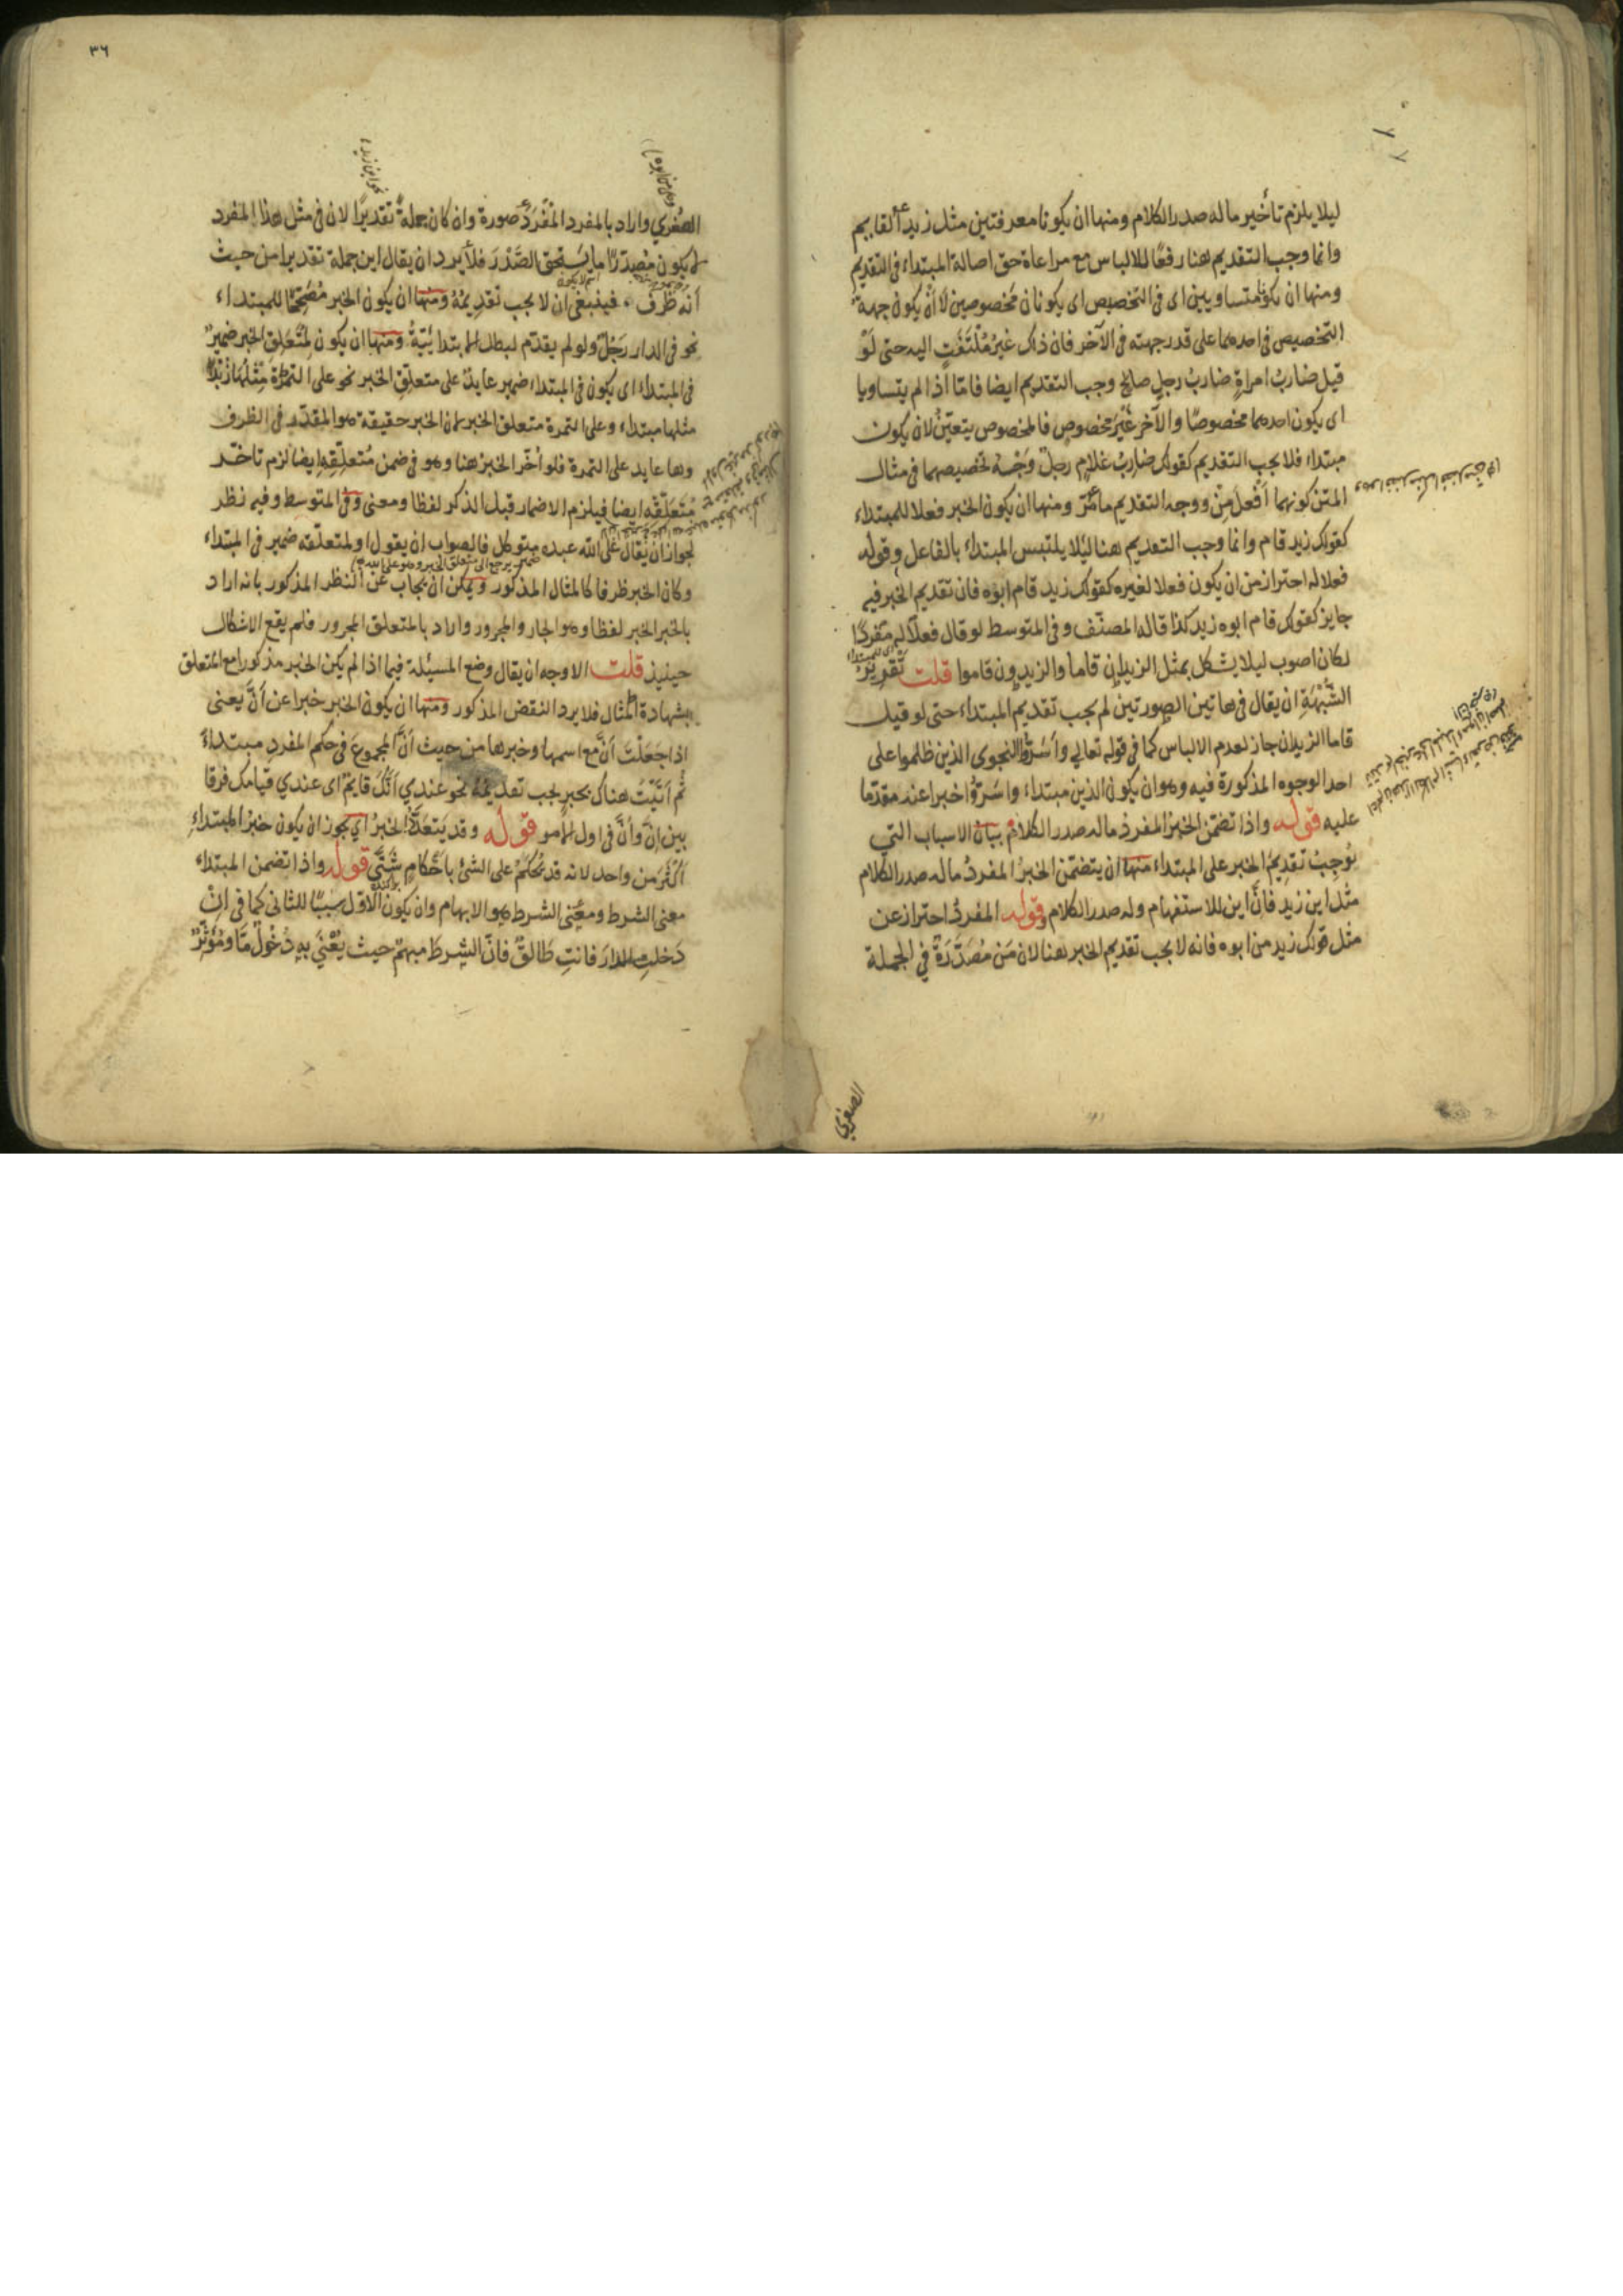 ليلا يلزم تأخير ماله صدر الكلام ومنها ان يكونا معرفتين مثل زيد القايم
وانما وجب التقديم هنا رفعًا للالباس مع مراعاة حق اصالة المبتداء فى التقديم
ومنها ان يكونا متساويين اى فى التخصيص اى يكونان مخصوصين لا أن يكون جهة
التخصيص فى احدهما على قدر جهته فى الآخر فان ذلك غير مُلْتَفَتٍ اليه حتى لَوْ
قيل ضاربُ امراةٍ ضاربُ رجلٍ صالحٍ وجب التقديم ايضا فامّا اذا لم يتساويا
اى يكون احدهما مخصوصًا والآخر غَيْرَ مخصوصٍ فالمخصوص يتعيّنُ لان يكون
مبتداء فلا يجب التقديم كقولك ضاربُ غلامٍ رجلٌ وَجْهُ تخصيصهما فى مثال
المتن كونهما اَفْعَلَ مِنْ ووجه التقديم مامرّ ومنها ان يكون الخبر فعلا للمبتداء
كقولك زيد قام وانما وجب التقديم هنا ليلا يلتبس المبتداء بالفاعل وقوله
فعلا له احتراز من ان يكون فعلا لغيره كقولك زيد قام ابوه فان تقديم الخبر فيه
جايز كقولك قام ابوه زيد كذا قاله المصنّف وفى المتوسط لو قال فعلًا له مفردًا
لكان اصوب ليلا يشكل بمثل الزيدان قاما والزيدون قاموا قلت تقرير
الشُّبْهَةِ ان يقال فى هاتين الصورتين لم يجب تقديم المبتداء حتى لو قيل
قاما الزيدان جاز لعدم الالباس كما فى قوله تعالى وأَسَرُّوا النجوى الذين ظلموا على
احد الوجوه المذكورة فيه وهو ان يكون الذين مبتداء واسَرُّوا خبرا عنه مقدّما
عليه قوله واذا تضمّن الخبرُ المفردُ ماله صدر الكلام بيان الاسباب التى
يُوجِبُ تقديمَ الخبر على المبتداء منها ان يتضمّن الخبرُ المفردُ ماله صدر الكلام
مثل اين زيد فانّ اين للاستفهام وله صدر الكلام وقوله المفردُ احتراز عن
مثل قولك زيد من ابوه فانه لا يجب تقديم الخبر هنا لان مَن مُصَدَّرَةٌ فى الجملة
الصغرى
٣٦
الصُّغرى واراد بالمفرد المُفْرَدُ صورة وان كان جملةً تقديرًا لان فى مثل هذا المفرد
يكون مُصدّرًا ما يَستحق الصَّدْرَ فلا يرد ان يقال اين جملة تقديرا من حيث
اَنه ظرف فينبغى ان لا يجب تقديمُهُ ومنها ان يكون الخبر مُصَحِّحًا للمبتداء
نحو فى الدار رَجُلٌ ولو لم يقدّم لبطل المبتدائيّةُ ومنها ان يكون لمُتَعَلِّقِ الخبر ضميرٌ
فى المبتداء اى يكون فى المبتداء ضمير عايدٌ على متعلقِ الخبر نحو على التمرةِ مِثْلُهَا زُبْدًا
مثلها مبتداء وعلى التمرة متعلق الخبر لان الخبر حقيقة هو المقدّر فى الظرف
وها عايد على التمرة فلو أخّر الخبر هنا وهو فى ضمن مُتعلِّقِهِ ايضا لزم تاخّر
مُتعَلّقِه ايضا فيلزم الاضمار قبل الذكر لفظا ومعنى وفى المتوسط وفيه نظر
لجواز ان يُقال على الله عبده متوكل فالصواب ان يقول او لمتعلّقه ضمير فى المبتداء
وكان الخبر ظرفا كالمثال المذكور ويمكن ان يجاب عن النظر المذكور بانه اراد
بالخبر الخبر لفظا وهو الجار والمجرور واراد بالمتعلق المجرور فلم يقع الاشكال
حينيذ قلت الاوجه ان يقال وضع المسيئلة فيما اذا لم يكن الخبر مذكورا مع المتعلق
بشهادة المثال فلا يرد النقض المذكور ومنها ان يكون الخبر خبرا عن أَنَّ يعنى
اذا جَعَلْتَ اَنّ مع اسمها وخبرها من حيث اَنَّ المجموعَ فى حكم المفردِ مبتداءً
ثُم اَتَيْتَ هناك بخبرٍ يجب تقديمُهُ نحو عندي اَنّكَ قايمٌ اى عندي قيامك فرقا
بين اِنَّ وأَنَّ فى اول الامر قوله وقد يَتعدّدُ الخبرُ اى يجوز ان يكون خبرُ المبتداءِ
اَكْثَرَ من واحد لانه قد يُحْكَمُ على الشئ باَحْكامٍ شَتّى قوله واذا تضمن المبتداء
معنى الشرط ومعنى الشرط هو الابهام وان يكون الاوّل سببًا للثانى كما فى ان
دَخلتِ الدارَ فانتِ طَالِقٌ فانّ الشرطَ مبهمٌ حيث يُعْنَى بِهِ دُخُولٌ مَّا ومُؤَثِّرٌ